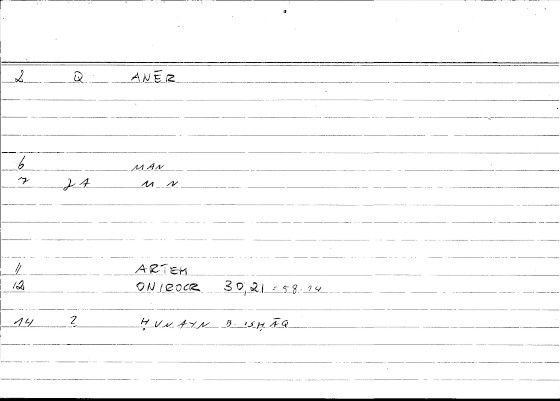 2 Q ANĒR
6 MAN
7 2A M N
11 ARTEM
12 ONIROCR 30,21 = 58.14
14 2 ḤUNAYN B. ISḤĀQ